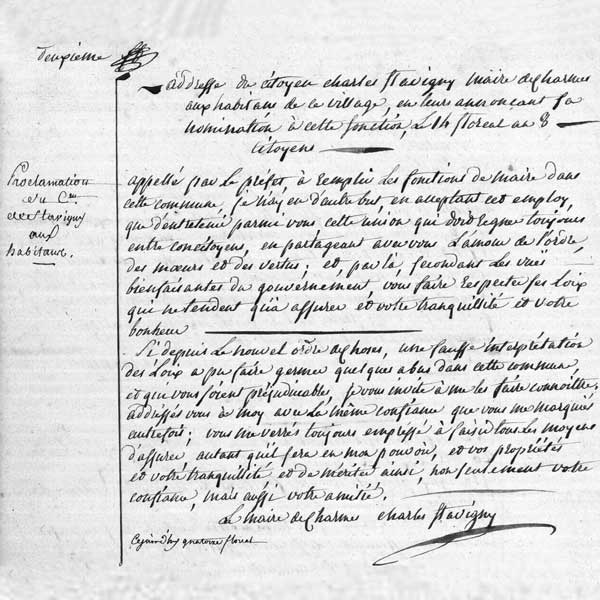 deuxième
addresse du citoyen charles flavigny maire de Charmes
aux habitans de ce village, en leurs annoncant sa
nomination à cette fonction, Le 14 floreal an 8
Citoyens
Proclamation
du C.en
de flavigny
aux
habitans.
appellé par Le préfet, à remplir Les fonctions de maire dans
cette commune, je n'ay en d'autre but en acceptant cet employ,
que d'entretenir parmi vous cette union qui doit regner toujours
entre concitoyens, en partageant avec vous L'amour de L'ordre,
des mœurs et des vertus; et, par là, secondant Les vuës
bienfaisantes du gouvernement, vous faire respecter ses Loix
qui ne tendent qu'à assurer et votre tranquillité et votre
bonheur
Si depuis Le nouvel ordre de choses, une fausse interprétation
des Loix a pu faire germer quelques abus dans cette commune,
et que vous soient préjudiciables, je vous invite à me les faire connoître;
addressés vous à moy avec La même confiance que vous me marquiés
autrefois; vous me verrés toujours empressé à saisir tous Les moyens
d'assurer autant qu'il sera en mon pouvoir, et vos propriétés
et votre tranquillité et de mériter ainsi, non seulement votre
confiance, mais aussi votre amitié.
Le maire de Charmes charles flavigny
quatorze floreal